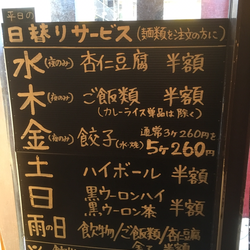 平日の
日替りサービス(麺類を注文の方に)
水(夜のみ) 杏仁豆腐 半額
木(夜のみ) ご飯類 半額
(カレーライス単品は除く)
金(夜のみ) 餃子(水・焼) 通常3ヶ260円を
5ヶ260円
土
日 ハイボール 半額
黒ウーロンハイ
黒ウーロン茶 半額
雨の日 飲物/ご飯類/杏仁豆腐